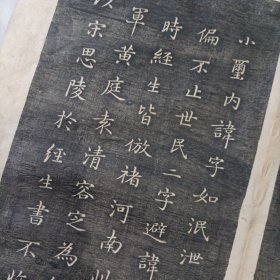 小璽內諱字如泯泄
偏不止世民二字避諱
時經生皆倣褚河南
軍黃庭袁清容定為
宋思陵於經生書不